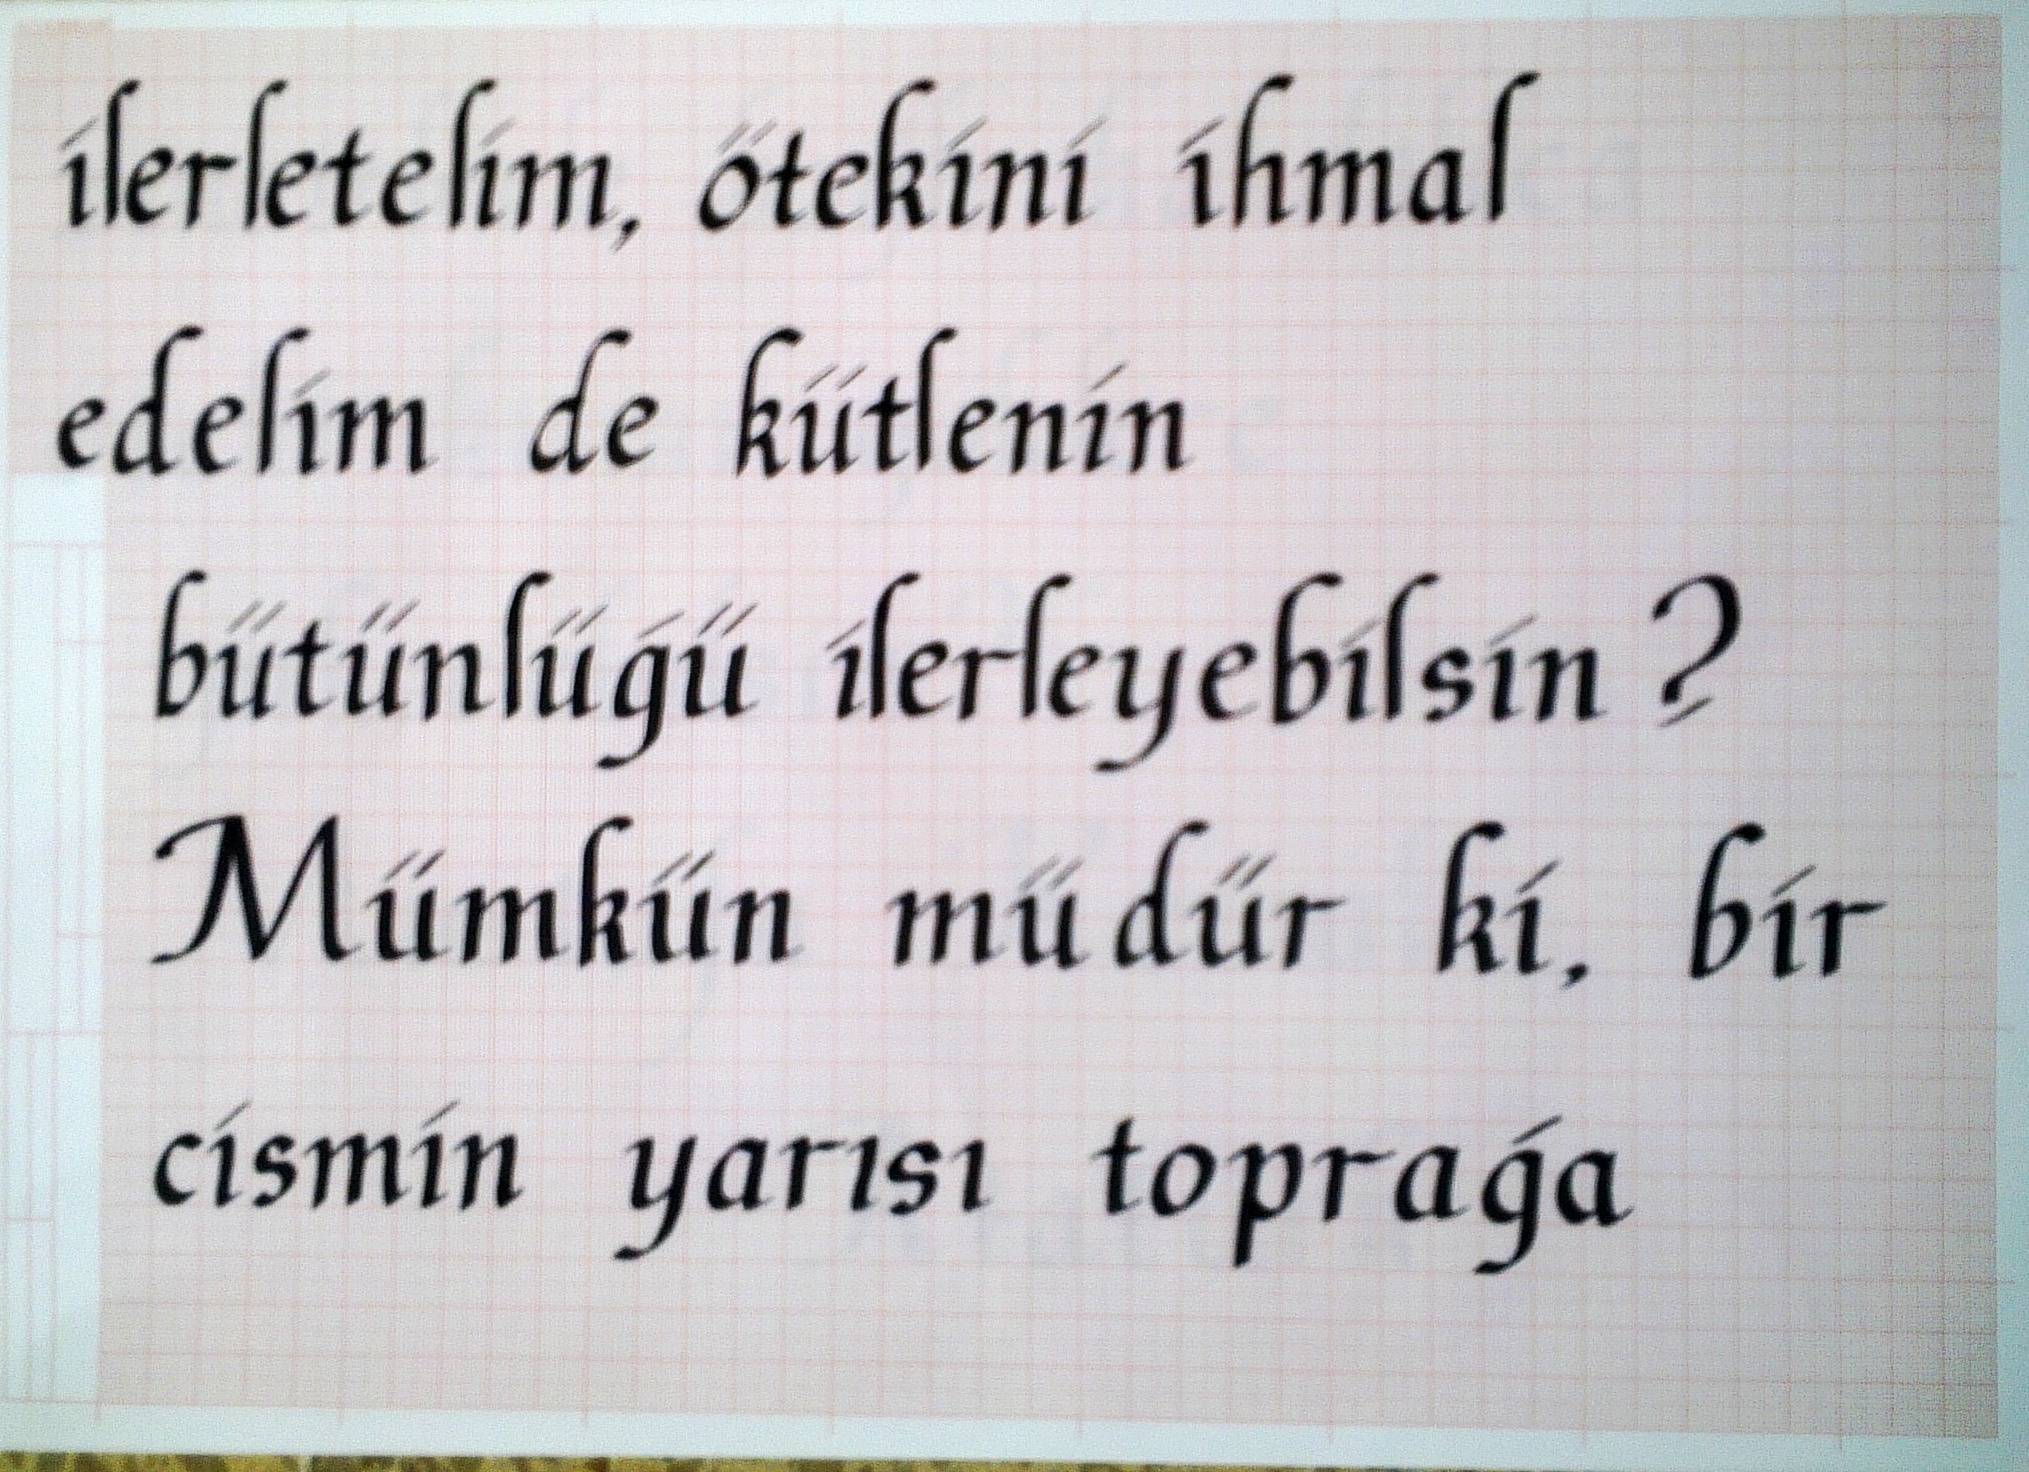 ilerletelim, ötekini ihmal
edelim de kütlenin
bütünlüğü ilerleyebilsin?
Mümkün müdür ki, bir
cismin yarısı toprağa